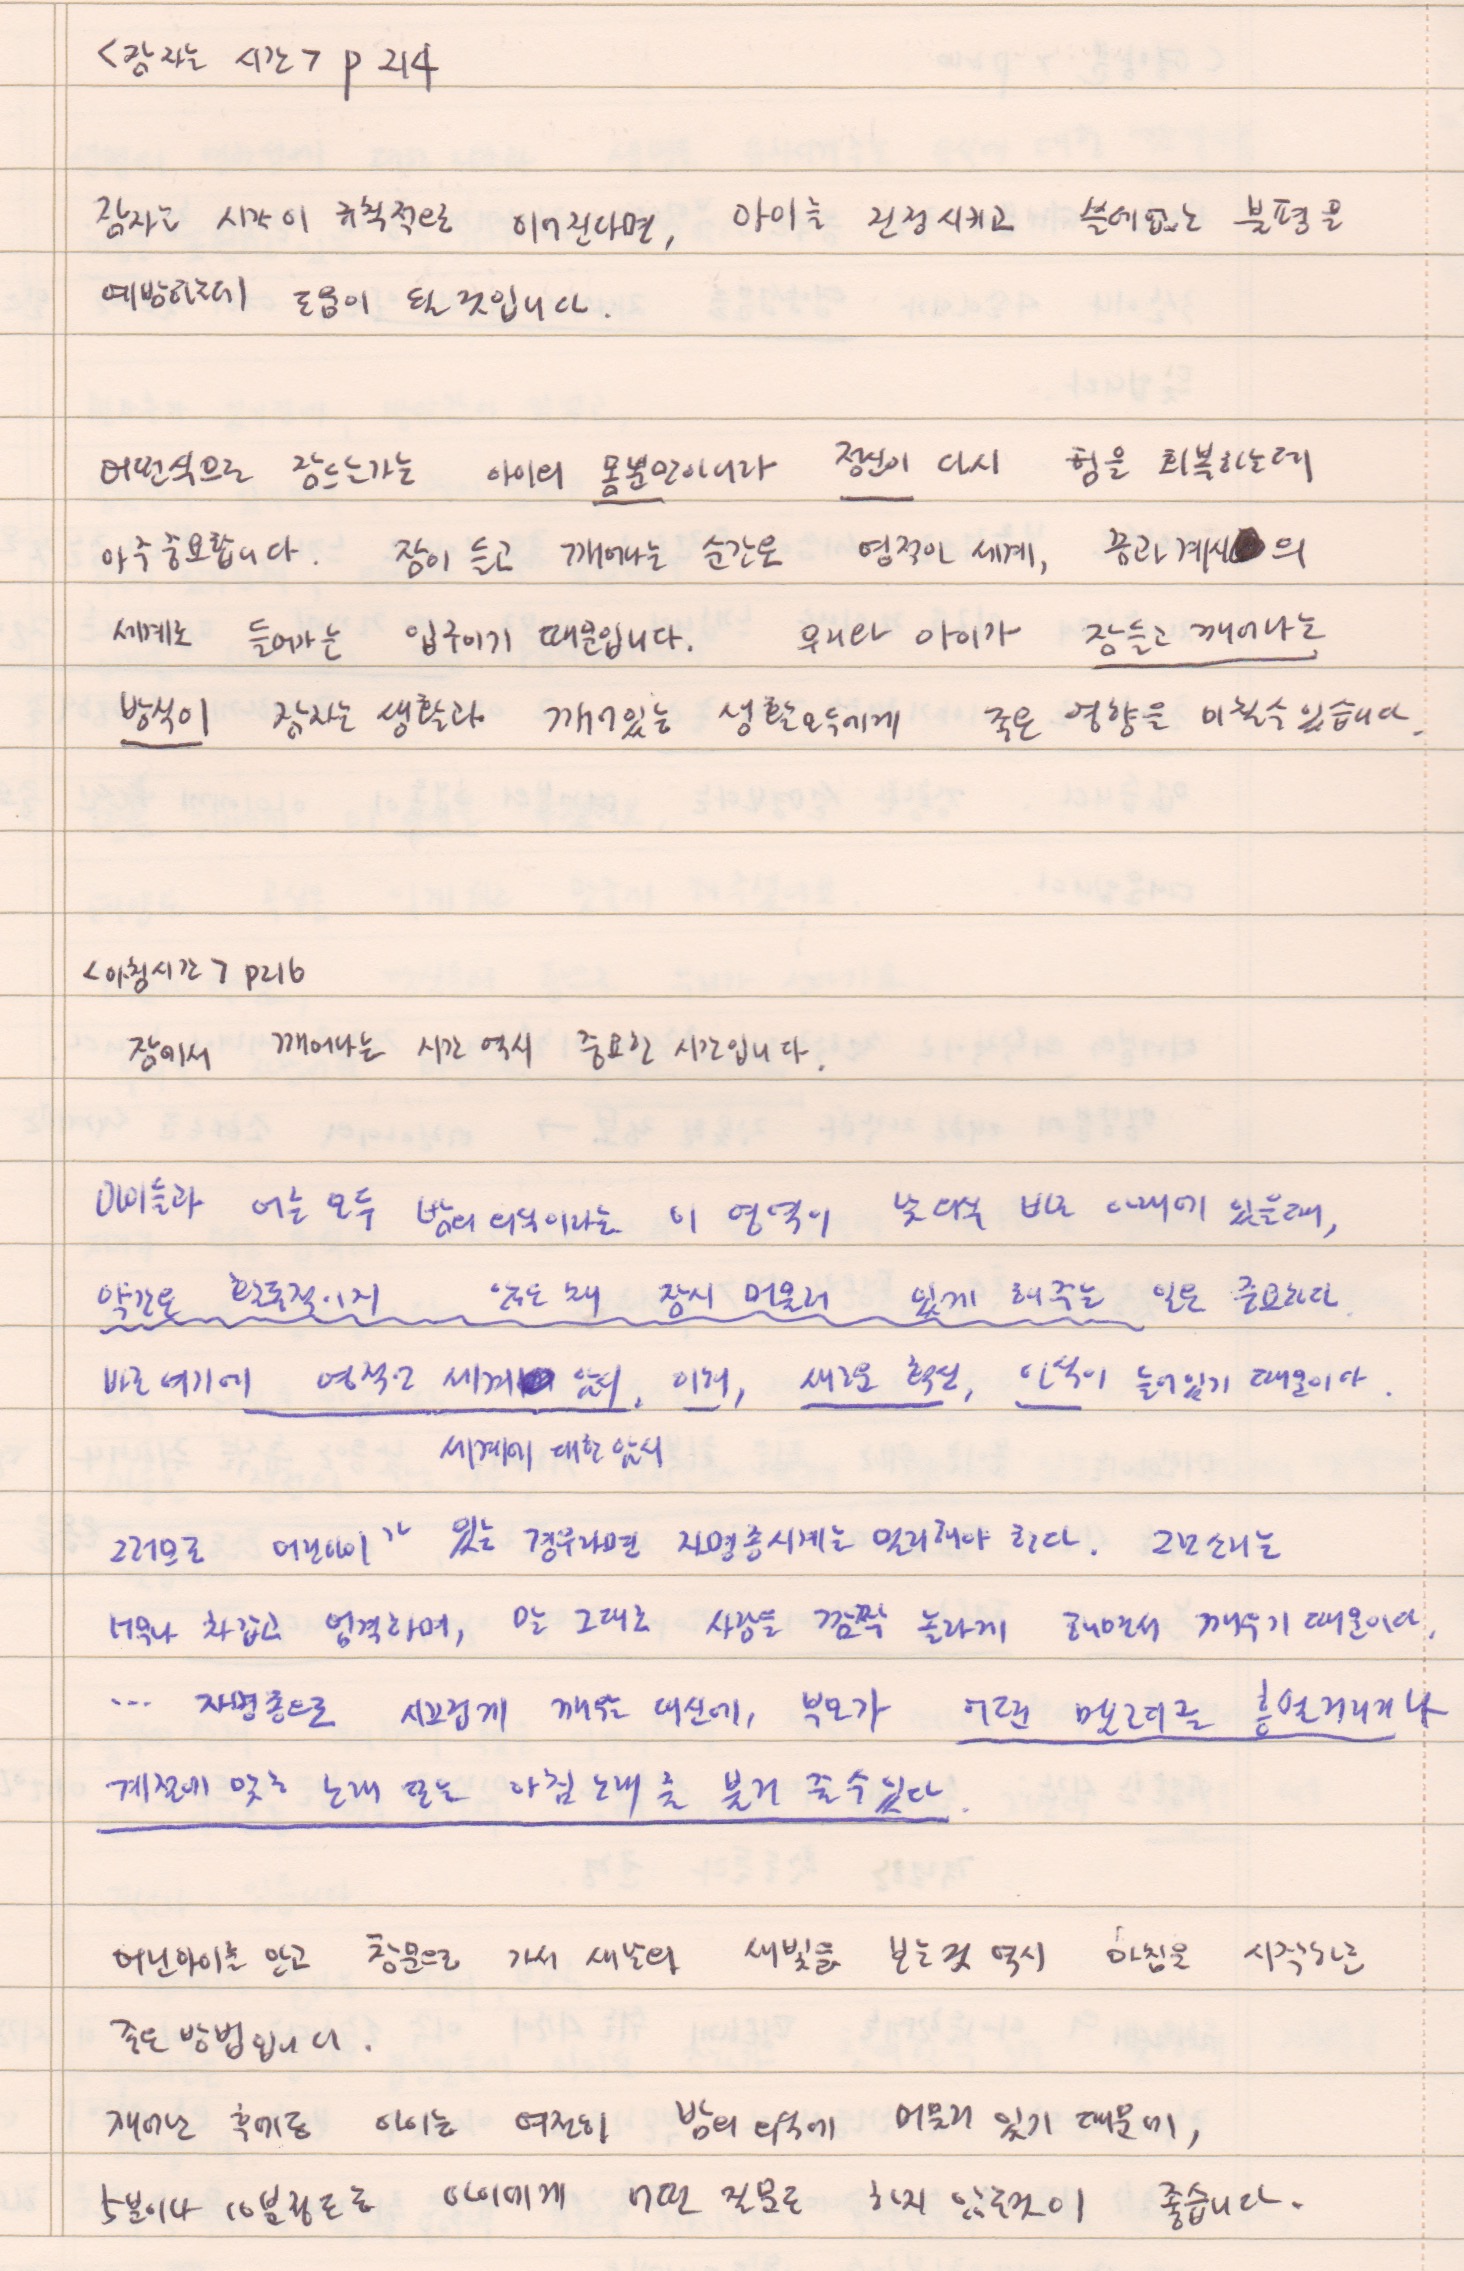 <잠자는 시간> p 214
잠자는 시각이 규칙적으로 이어진다면, 아이를 진정시키고 쓸데없는 불평을
예방하는데 도움이 될 것입니다.
어떤식으로 잠드는가는 아이의 몸뿐만아니라 정신이 다시 힘을 회복하는데
아주 중요합니다. 잠이 들고 깨어나는 순간은 영적인 세계, 꿈과 계시의
세계로 들어가는 입구이기 때문입니다. 우리와 아이가 잠들고 깨어나는
방식이 잠자는 생활과 깨어있는 생활 모두에게 좋은 영향을 미칠수 있습니다.
<아침시간> p216
잠에서 깨어나는 시간 역시 중요한 시간입니다.
아이들과 어른 모두 밤의 의식이라는 이 영역이 낮 의식 바로 아래에 있을때,
약간은 활동적이지 않은 채 잠시 머물러 있게 해주는 일은 중요하다.
바로 여기에 영적인 세계의 암시, 이해, 새로운 확신, 인식이 놓여있기 때문이다.
세계에 대한 암시
그러므로 어린아이가 있는 경우라면 자명종시계는 멀리해야 한다. 그 소리는
너무나 차갑고 엄격하며, 말 그대로 사람을 깜짝 놀라게 하면서 깨우기 때문이다.
... 자명종으로 시끄럽게 깨우는 대신에, 부모가 어떤 멜로디를 흥얼거리거나
계절에 맞는 노래 또는 아침 노래를 불러 줄 수 있다.
어린아이를 안고 창문으로 가서 새날의 새빛을 보는것 역시 아침을 시작하는
좋은 방법입니다.
깨어난 후에도 아이는 여전히 밤의 의식에 머물러 있기 때문에,
5분이나 10분정도는 아이에게 어떤 질문도 하지 않는것이 좋습니다.